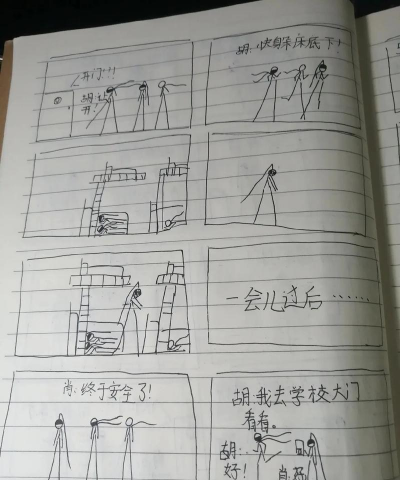 开门!!!
胡:让
开!
胡:快躲床底下!
一会儿过后……
肖:终于安全了!
胡:我去学校大门
看看。
胡:
好!
肖:好